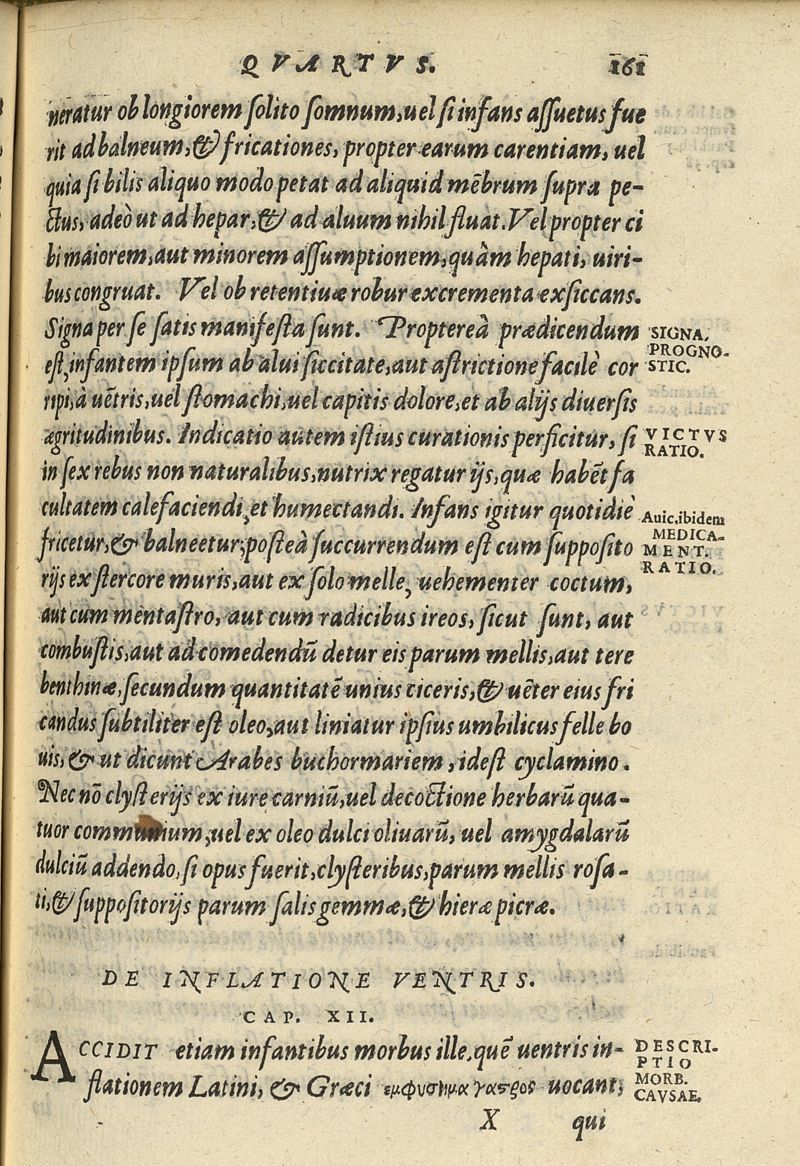 QVARTVS. 161
neratur ob longiorem solito somnum, uel si infans assuetus fue
rit ad balneum, & fricationes, propter earum carentiam, uel
quia si bilis aliquo modo petat ad aliquid mẽbrum supra pe-
ctus, adeò ut ad hepar, & ad aluum nihil fluat. Vel propter ci
bi maiorem, aut minorem assumptionem, quàm hepati, uiri-
bus congruat. Vel ob retentiuæ robur excrementa exsiccans.
Signa per se satis manifesta sunt. Propterea prædicendum
est, infantem ipsum ab alui siccitate, aut astrictione facilè cor
ripi, à uẽtris, uel stomachi, uel capitis dolore, et ab alijs diuersis
ægritudinibus. Indicatio autem istius curationis perficitur, si
in sex rebus non naturalibus, nutrix regatur ijs, quæ habẽt fa
cultatem calefaciendi, et humectandi. Infans igitur quotidiè
fricetur, & balneetur; posteà succurrendum est cum supposito
rijs ex stercore muris, aut ex solo melle, uehementer coctum,
aut cum mentastro, aut cum radicibus ireos, sicut sunt, aut
combustis, aut ad comedendũ detur eis parum mellis, aut tere
benthinæ, secundum quantitatẽ unius ciceris, & uẽter eius fri
candus subtiliter est oleo, aut liniatur ipsius umbilicus felle bo
uis, & ut dicunt Arabes buchormariem, idest cyclamino.
Nec nõ clysterijs ex iure carniũ, uel decoctione herbarũ qua-
tuor communium, uel ex oleo dulci oliuarũ, uel amygdalarũ
dulciũ addendo, si opus fuerit, clysteribus, parum mellis rosa-
ti, & suppositorijs parum salis gemmæ, & hieræ picræ.
SIGNA.
PROGNO-
STIC.
VICTVS
RATIO.
Auic. ibidem
MEDICA-
MENT.
RATIO.
DE INFLATIONE VENTRIS.
CAP. XII.
ACCIDIT etiam infantibus morbus ille, quẽ uentris in-
flationem Latini, & Græci εμφυσημα γαστρος uocant,
DESCRI-
PTIO
MORB.
CAVSAE.
X qui